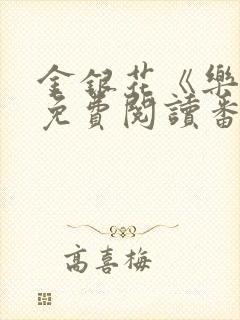 金銀花《樂
免費閱讀番
高喜梅